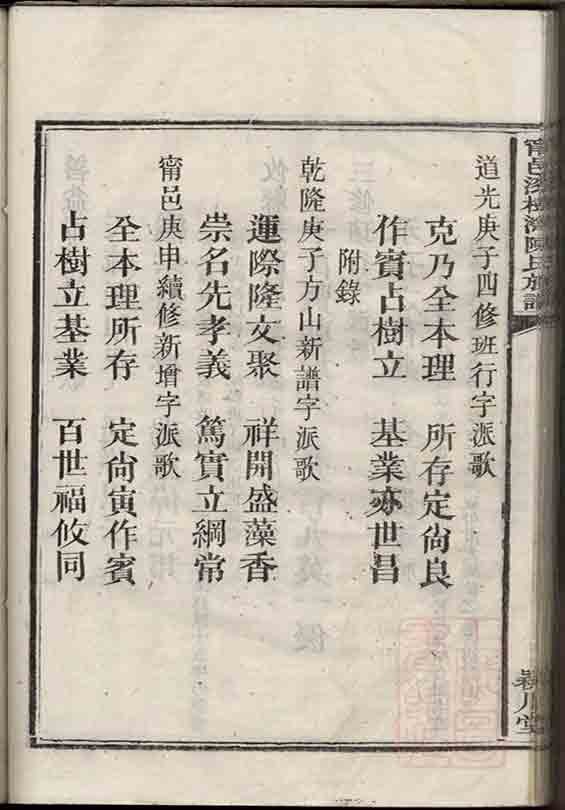 甯邑深柳灣陳氏族譜
道光庚子四修班行字派歌
克乃全本理　所存定尙良
作賓占樹立　基業亦世昌
附錄
乾隆庚子方山新譜字派歌
運際隆文聚　祥開盛藻香
崇名先孝義　篤實立綱常
甯邑庚申續修新增字派歌
仝本理所存　定尙寅作賓
占樹立基業　百世福攸同
穎川堂